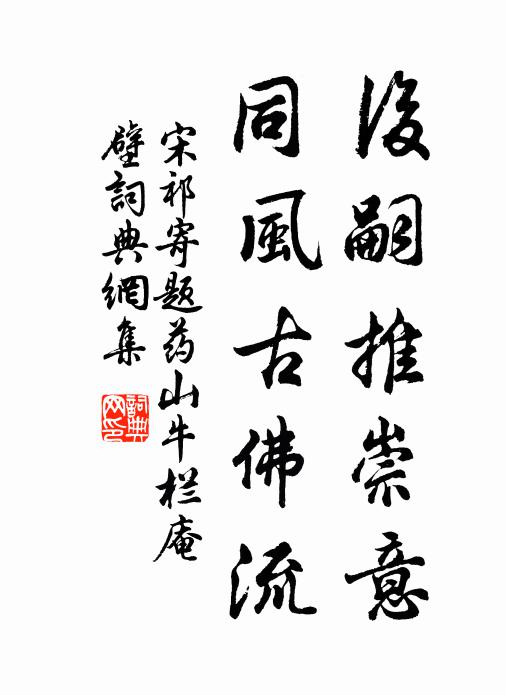 後嗣推崇意
同風古佛流
宋祁寄題药山牛栏庵
壁詞典網集
詞典
网印